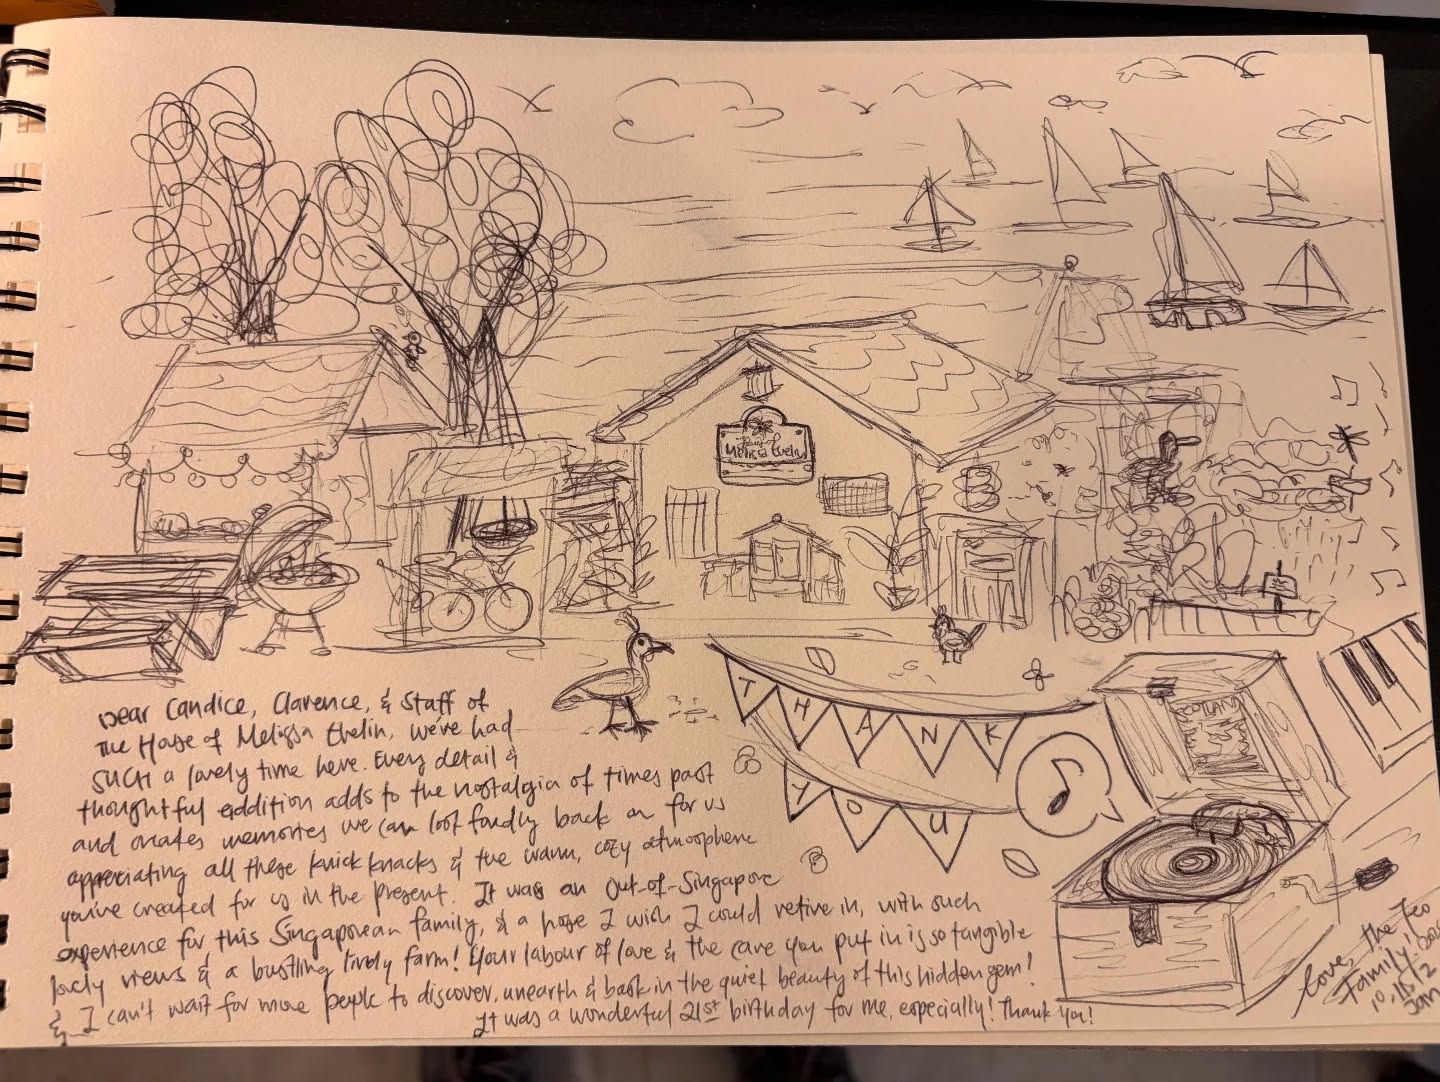 Melissa Evelin
THANK
YOU
Dear Candice, Clarence, & Staff of
The House of Melissa Evelin, we've had
SUCH a lovely time here. Every detail &
thoughtful addition adds to the nostalgia of times past
and makes memories we can look fondly back on for us
appreciating all these knick knacks & the warm, cozy atmosphere
you've created for us in the present. It was an Out-of-Singapore
experience for this Singaporean family, & a home I wish I could retire in, with such
lovely views & a bustling lively farm! Your labour of love & the care you put in is so tangible
& I can't wait for more people to discover, unearth & bask in the quiet beauty of this hidden gem!
It was a wonderful 21st birthday for me, especially! Thank you!
Love, the Teo
Family!!
Jan